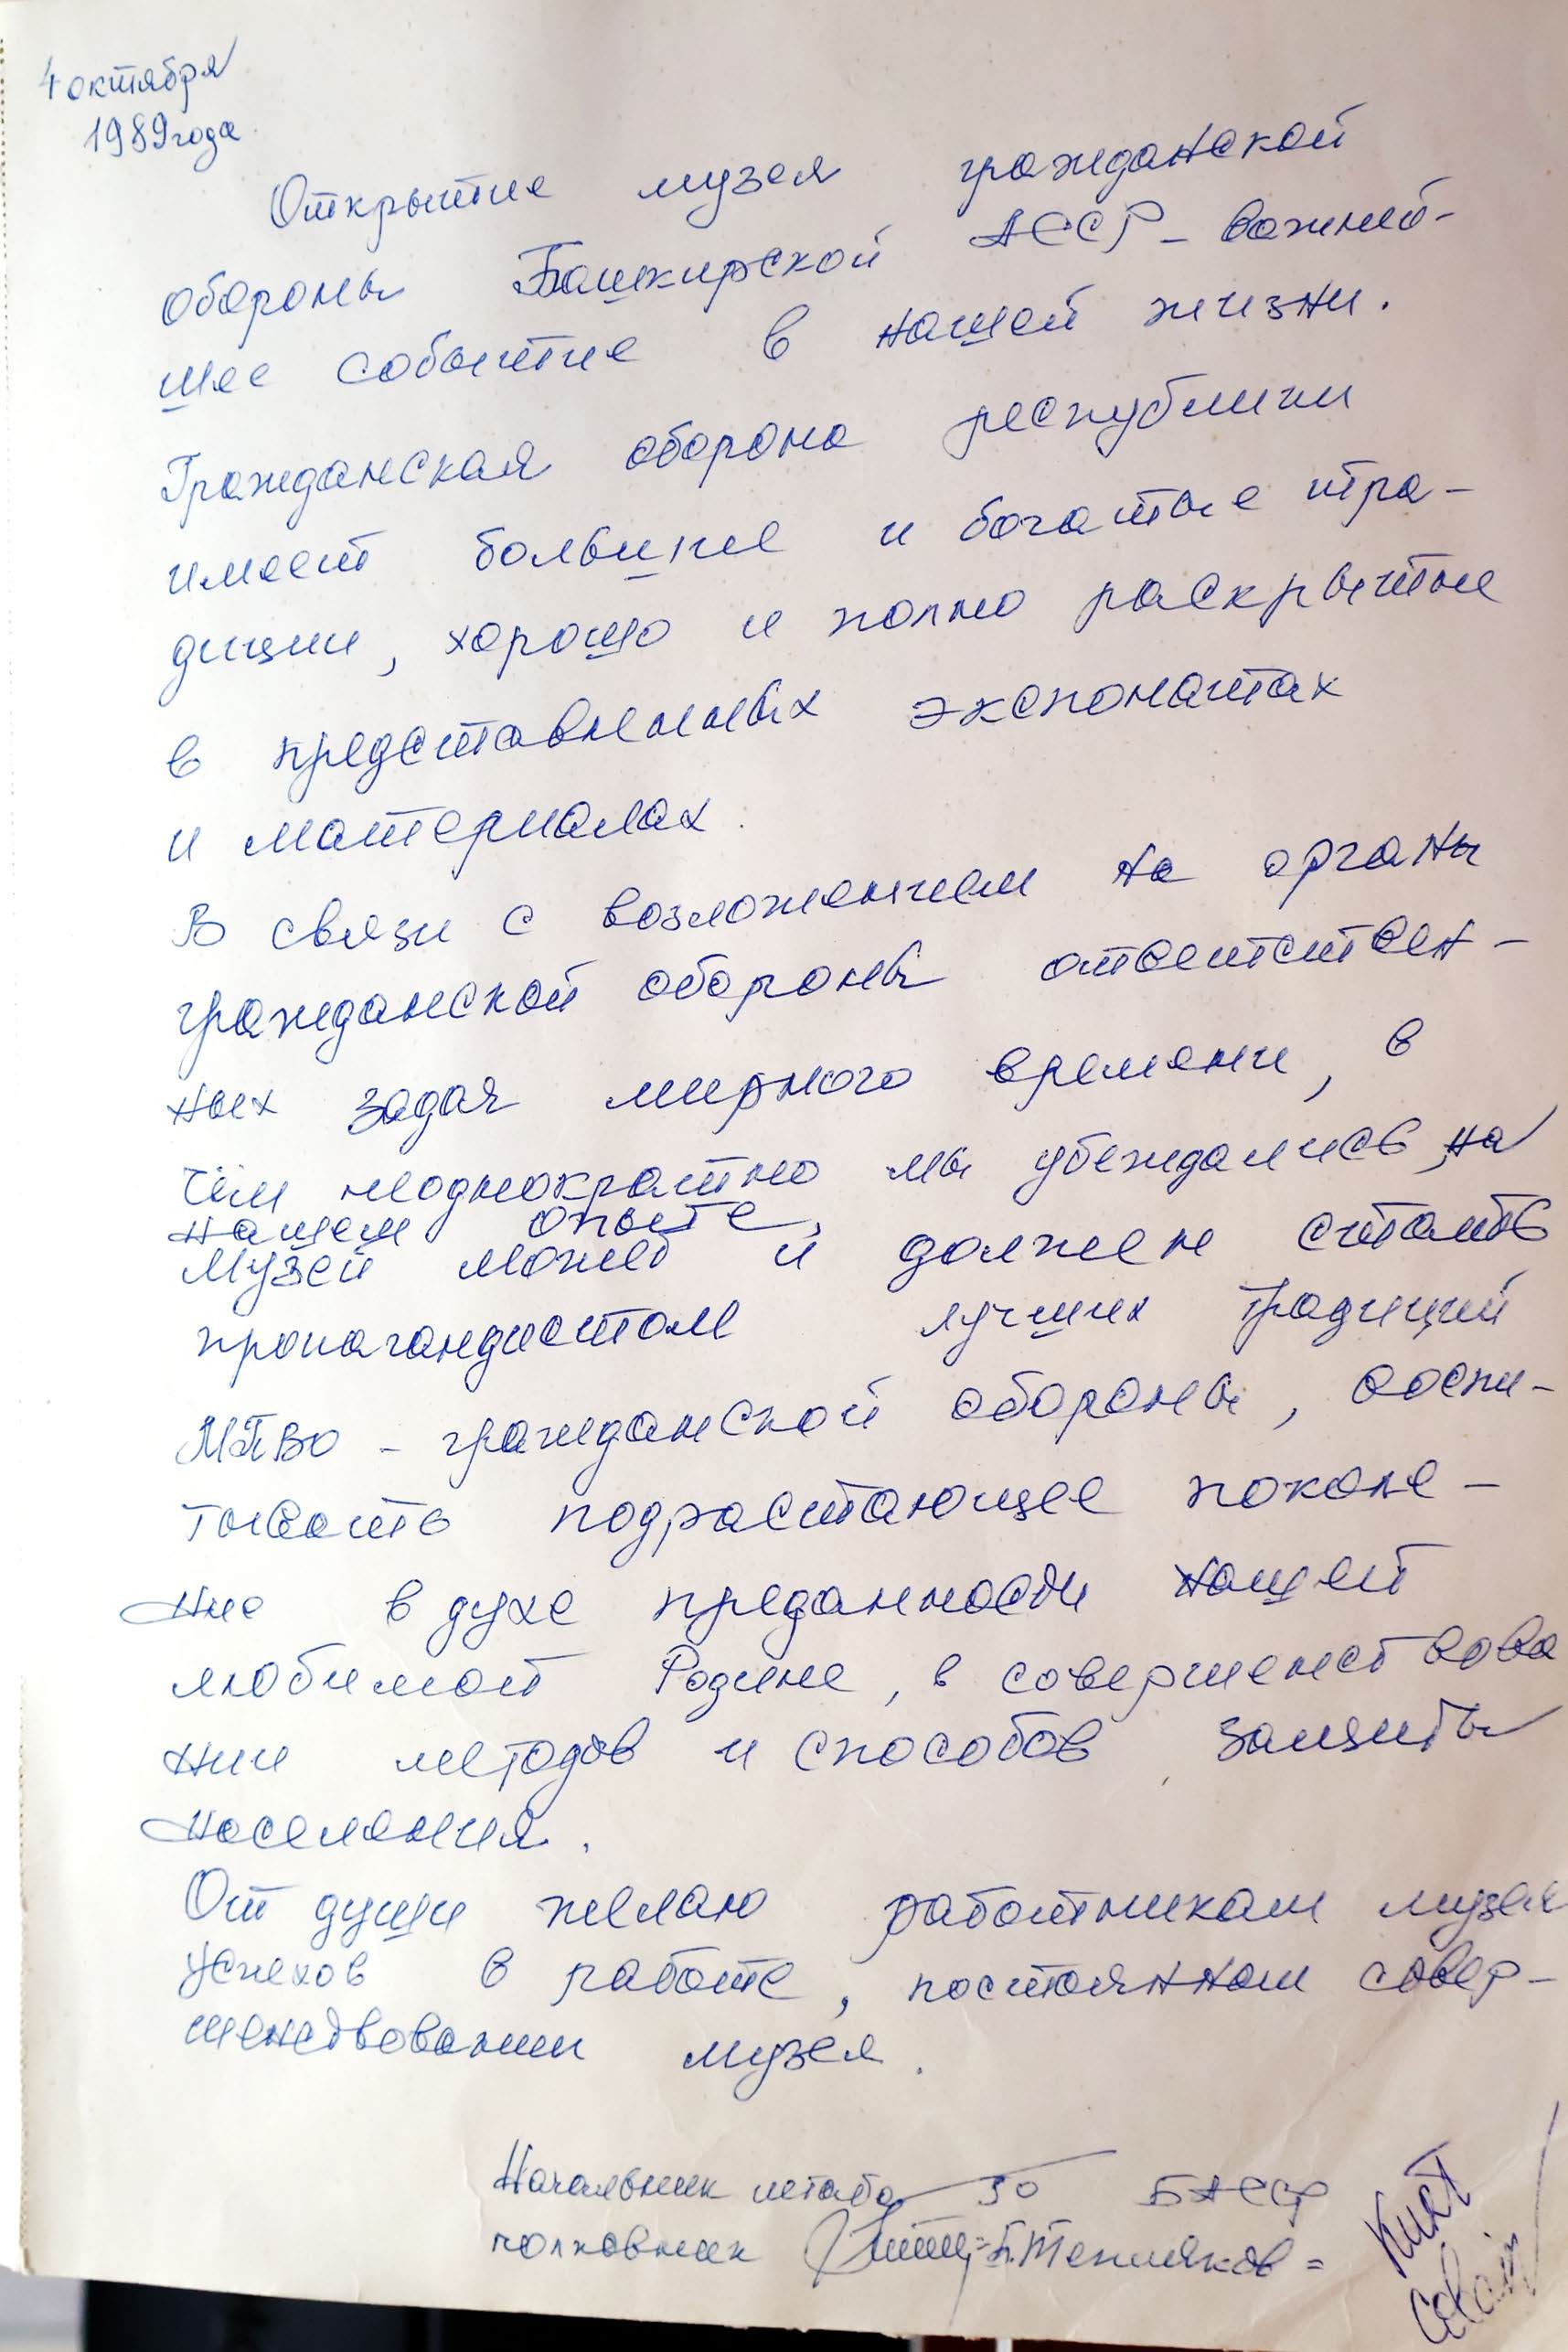 4 октября
1989 года
Открытие музея гражданской
обороны Башкирской АССР - важней-
шее событие в нашей жизни.
Гражданская оборона республики
имеет большие и богатые тра-
диции, хорошо и полно раскрытые
в представленных экспонатах
и материалах.
В связи с возложением на органы
гражданской обороны ответствен-
ных задач мирного времени, в
чём неоднократно мы убеждались на
нашем опыте,
Музей может и должен стать
пропагандистом лучших традиций
МПВО - гражданской обороны, воспи-
тывать подрастающее поколе-
ние в духе преданности нашей
любимой Родине, в совершенствова
нии методов и способов защиты
населения.
От души желаю работникам музея
успехов в работе, постоянном совер-
шенствовании музея.
Начальник штаба ГО БАССР
полковник